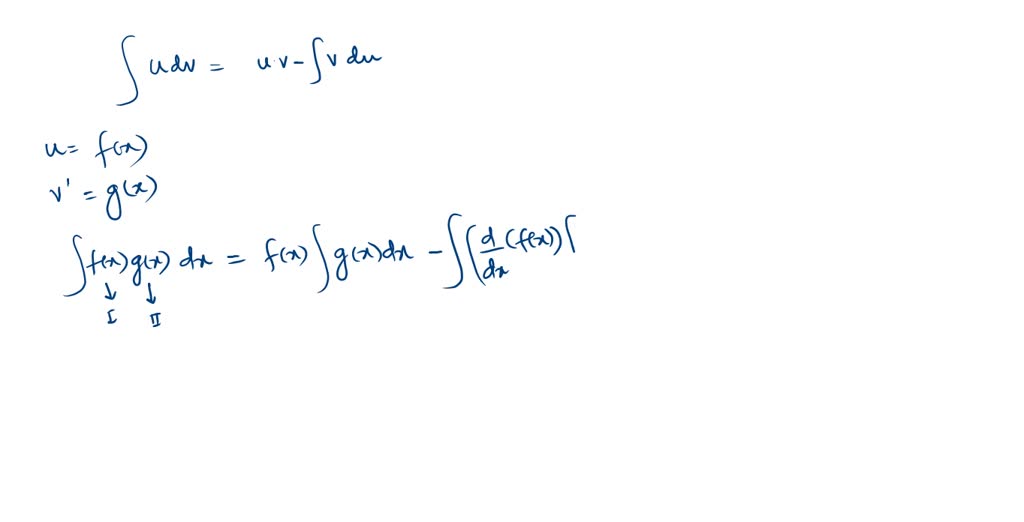 ∫ u dv = u·v − ∫ v du
u = f(x)
v' = g(x)
∫ f(x) g(x) dx = f(x) ∫ g(x) dx − ∫ ( d/dx (f(x)) ∫
↓ ↓
I II